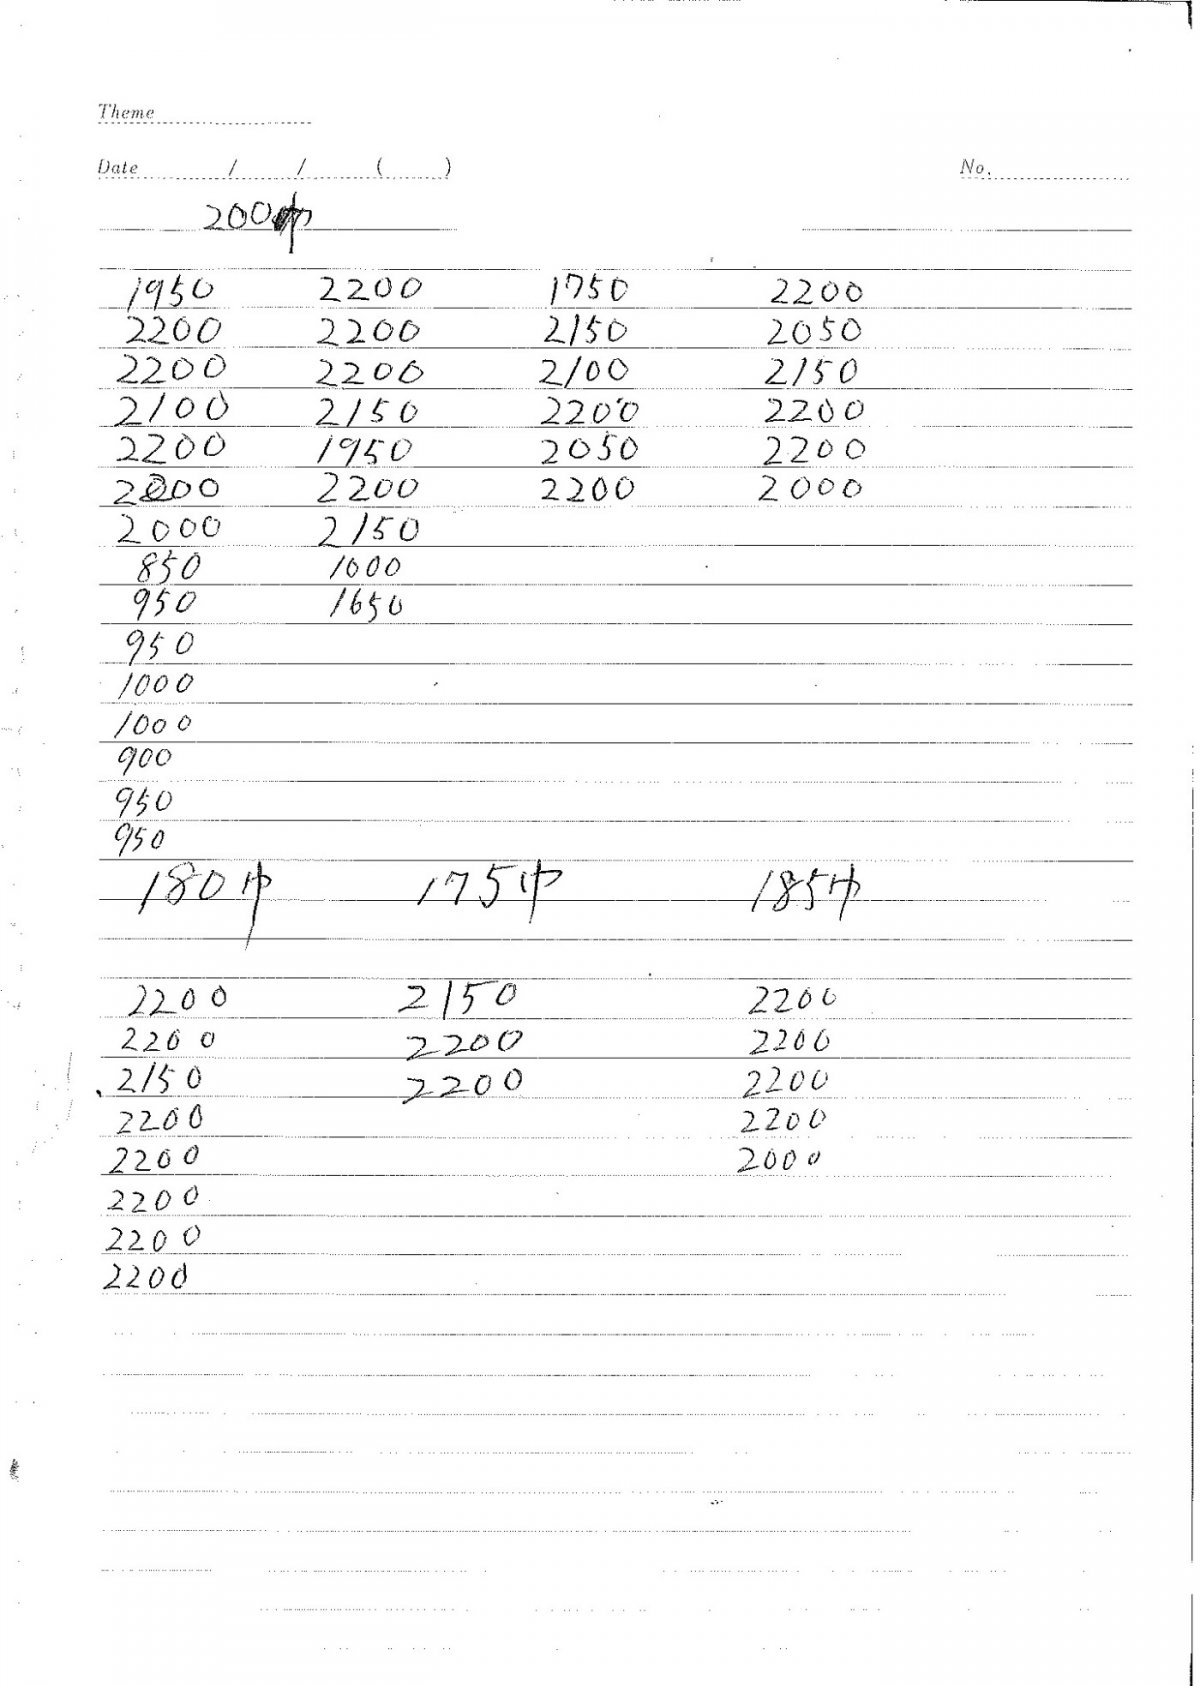 Theme
Date / / ( ) No.
200巾
1950 2200 1750 2200
2200 2200 2150 2050
2200 2200 2100 2150
2100 2150 2200 2200
2200 1950 2050 2200
2200 2200 2000
2000 2150
850 1000
950 1650
950
1000
1000
900
950
950
180巾 175巾 185巾
2200 2150 2200
2200 2200 2200
2150 2200 2200
2200 2200
2200 2000
2200
2200
2200